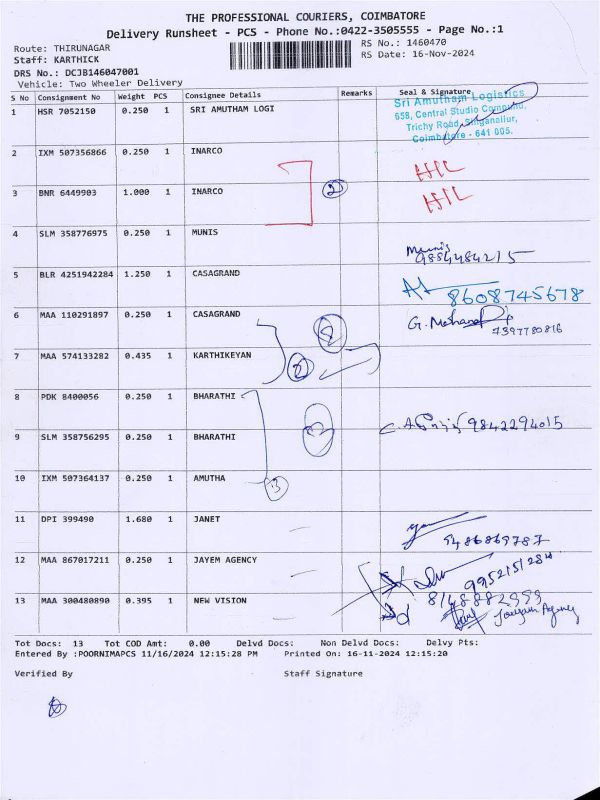 THE PROFESSIONAL COURIERS, COIMBATORE
Delivery Runsheet - PCS - Phone No.:0422-3505555 - Page No.:1
Route: THIRUNAGAR RS No.: 1460470
Staff: KARTHICK RS Date: 16-Nov-2024
DRS No.: DCJB146047001
Vehicle: Two Wheeler Delivery
S No Consignment No Weight PCS Consignee Details Remarks Seal & Signature
1 HSR 7052150 0.250 1 SRI AMUTHAM LOGI
Sri Amutham Logistics
658, Central Studio Compound,
Trichy Road, Singanallur,
Coimbatore - 641 005.
2 IXM 507356866 0.250 1 INARCO HIL
3 BNR 6449903 1.000 1 INARCO 2 HIL
4 SLM 358776975 0.250 1 MUNIS Munis
9884484215
5 BLR 4251942284 1.250 1 CASAGRAND 8608745678
6 MAA 110291897 0.250 1 CASAGRAND G. Mohana
7397780816
7 MAA 574133282 0.435 1 KARTHIKEYAN 2
8 PDK 8400056 0.250 1 BHARATHI
9 SLM 358756295 0.250 1 BHARATHI 9842294015
10 IXM 507364137 0.250 1 AMUTHA 3
11 DPI 399490 1.680 1 JANET
9486869787
12 MAA 867017211 0.250 1 JAYEM AGENCY
13 MAA 300480890 0.395 1 NEW VISION
Tot Docs: 13 Tot COD Amt: 0.00 Delvd Docs: Non Delvd Docs: Delvy Pts:
Entered By :POORNIMAPCS 11/16/2024 12:15:28 PM Printed On: 16-11-2024 12:15:20
Verified By Staff Signature